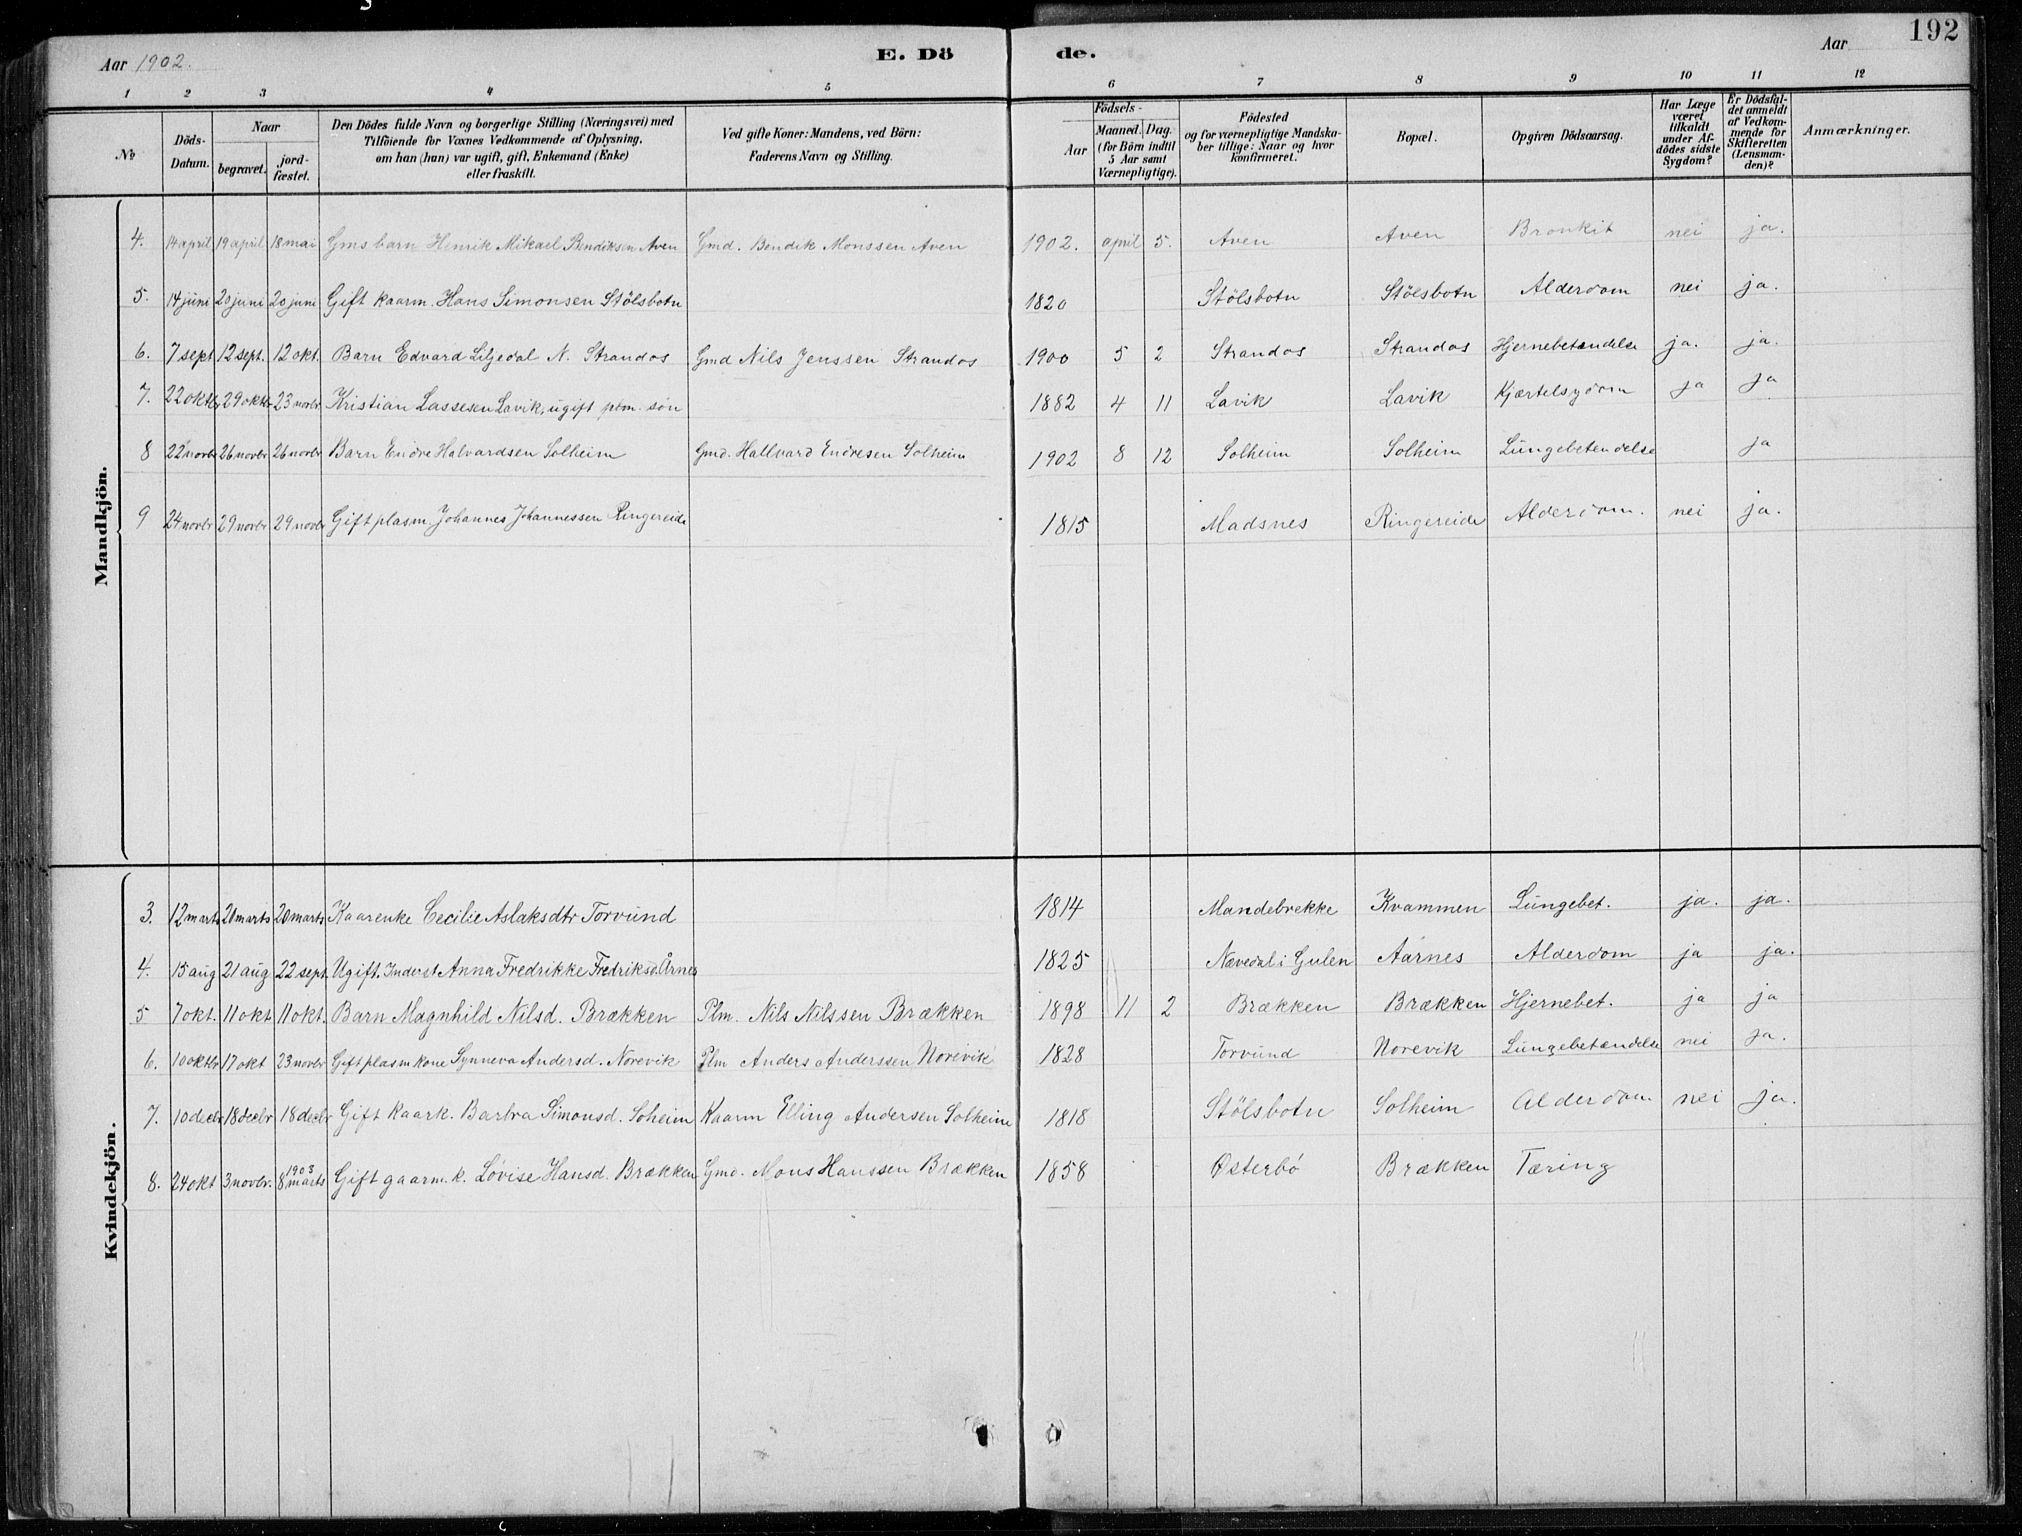 192
Aar 1902.
E. Dö
de.
Aar
1 2 3 4 5 6 7 8 9 10 11 12
No
Döds-Datum.
Naar
begravet.
jord-fæstet.
Den Dödes fulde Navn og borgerlige Stilling (Næringsvei) med
Tilföiende for Voxnes Vedkommende af Oplysning,
om han (hun) var ugift, gift, Enkemand (Enke)
eller fraskilt.
Ved gifte Koner: Mandens, ved Börn:
Faderens Navn og Stilling.
Födsels-
Aar
Maaned. Dag.
(for Börn indtil
5 Aar samt
Værnepligtige).
Födested
og for værnepligtige Mandska-
ber tillige: Naar og hvor
konfirmeret.
Bopæl.
Opgiven Dödsaarsag.
Har Læge
været
tilkaldt
under Af-
dödes sidste
Sygdom?
Er Dödsfal-
det anmeldt
af Vedkom-
mende for
Skifteretten
(Lensman-
den)?
Anmærkninger.
Mandkjön.
4. 14 april 19 april 18 mai Gmsbarn Henrik Mikael Bendiksen Aven Gmd. Bendik Monssen Aven 1902. april 5. Aven Aven Bronkit nei ja.
5. 14 juni 20 juni 20 juni Gift kaarm. Hans Simonsen Stölsbotn 1820 Stölsbotn Stölsbotn Alderdom nei ja.
6. 7 sept 12 sept. 12 okt. Barn Edvard Liljedal N. Strandos Gmd Nils Jenssen Strandos 1900 5 2 Strandos Strandos Hjernebetændelse ja. ja.
7. 22 oktbr 29 oktbr 23 novbr Kristian Lassesen Lavik, ugift plm. sön 1882 4 11 Lavik Lavik Kjærtelsygdom ja ja
8 22 novbr 26 novbr 26 novbr Barn Endre Halvardsen Solheim Gmd. Hallvard Endresen Solheim 1902 8 12 Solheim Solheim Lungebetendelse ja
9 24 novbr 29 novbr 29 novbr Gift plasm. Johannes Johannessen Ringereide 1815 Madsnes Ringereide Alderdom. nei ja.
Kvindekjön.
3. 12 marts 20 marts 20 marts Kaarenke Cecilie Aslaksdtr Torvund 1814 Mandebrekke Kvammen Lungebet. ja. ja.
4. 15 aug 21 aug 22 sept. Ugift. Inderst Anna Fredrikke Fredriksd. Årnes 1825 Nævedal i Gulen Aarnes Alderdom ja ja.
5 7 okt. 11 okt 11 okt. Barn Magnhild Nilsd. Brækken Plm. Nils Nilssen Brækken 1898 11 2 Brækken Brækken Hjernebet. ja ja
6. 10 oktbr 17 okt 23 novbr Gift plasmkone Synneva Andersd. Norevik Plm Anders Anderssen Norevik 1828 Torvund Norevik Lungebetændelse nei ja.
7. 10 decbr 18 decbr 18 decbr Gift kaark. Barbra Simonsd. Soheim Kaarm Elling Andersen Solheim 1818 Stölsbotn Solheim Alderdom nei ja.
8. 24 okt 3 novbr. 1903 8 marts Gift gaarm. k. Lövise Hansd. Brækken Gmd. Mons Hanssen Brækken 1858 Østerbö Brækken Tæring